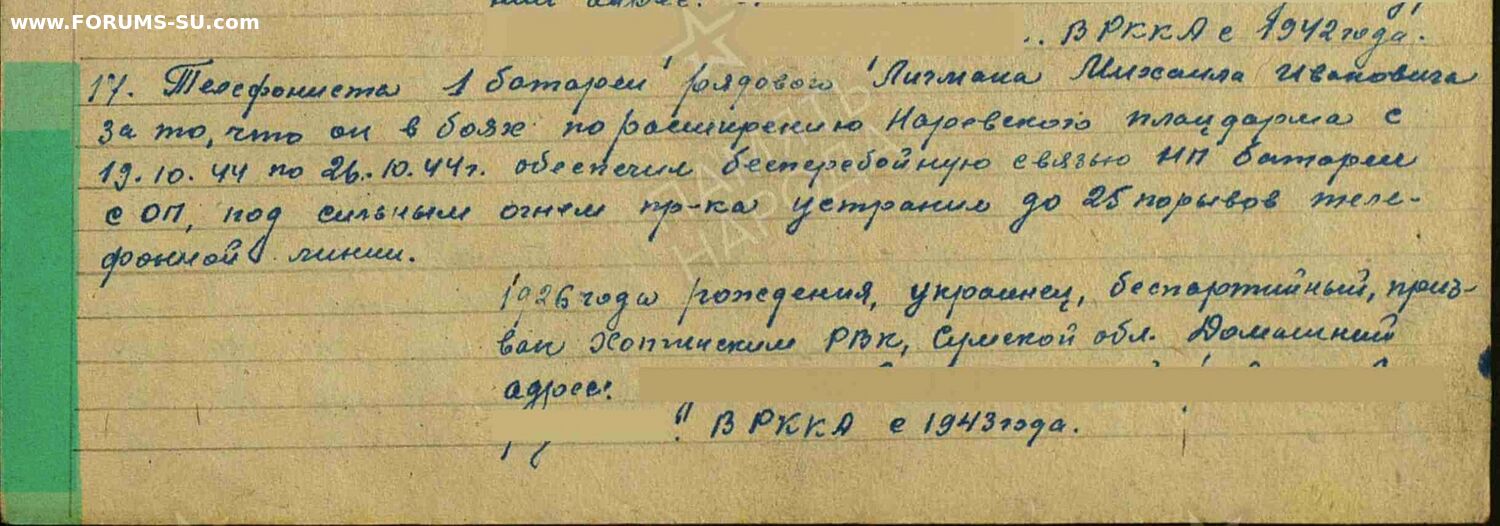 www.FORUMS-SU.com
В РККА с 1942 года.
17. Телефониста 1 батареи рядового Личмана Михаила Ивановича
за то, что он в боях по расширению Наревского плацдарма с
19.10.44 по 26.10.44г. обеспечил бесперебойную связью НП батареи
с ОП, под сильным огнем пр-ка устранил до 25 порывов теле-
фонной линии.
1926 года рождения, украинец, беспартийный, приз-
ван Хотинским РВК, Сумской обл. Домашний
адрес:
В РККА с 1943 года.
ПАМЯТЬ
НАРОДА